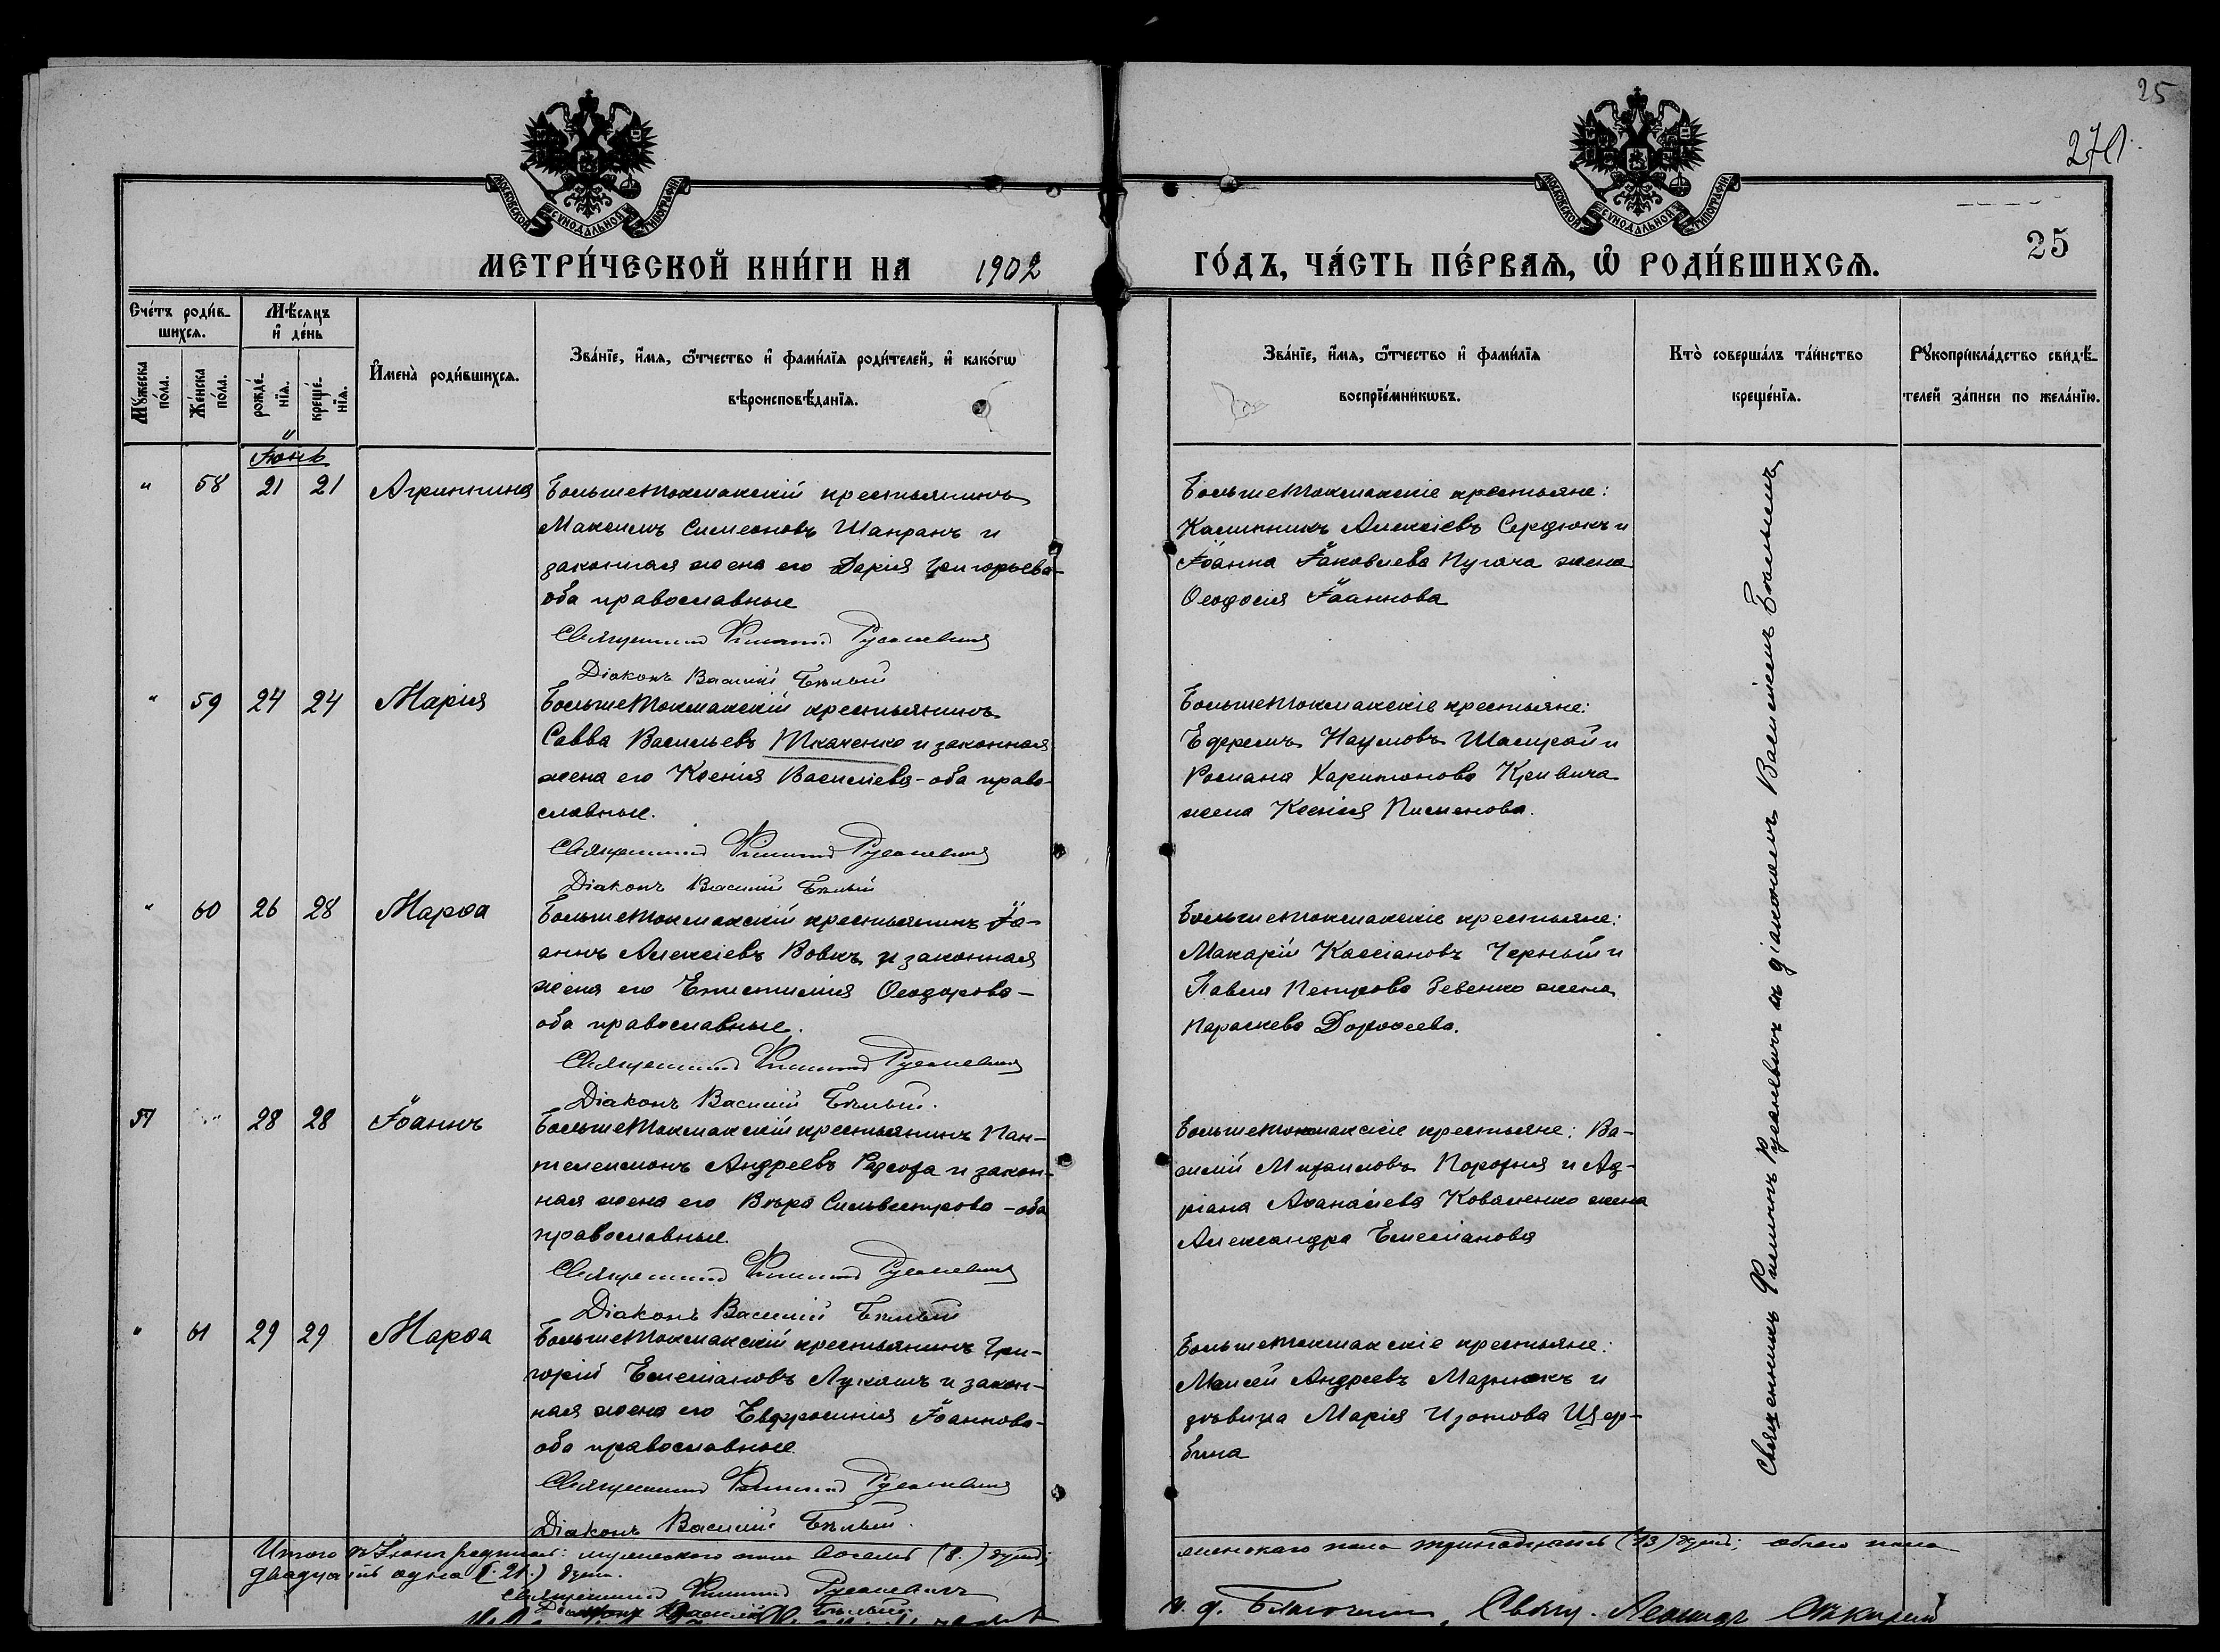 25
271.
МОСКОВСКОЙ СѴНОДАЛЬНОЙ ТИПОГРАФІИ
МОСКОВСКОЙ СѴНОДАЛЬНОЙ ТИПОГРАФІИ
МЕТРИ́ЧЕСКОЙ КНИ́ГИ НА 1902
ГО́ДЪ, ЧА́СТЬ ПЕ́РВАѦ, Ѡ҆ РОДИ́ВШИХСѦ.
25
Сче́тъ роди́в-
шихсѧ.
Мѣ́сѧцъ
и҆ де́нь
Мꙋ́жеска
по́ла.
Же́нска
по́ла.
рожде́-
нїѧ.
креще́-
нїѧ.
И҆мена̀ роди́вшихсѧ.
Зва́нїе, и҆́мѧ, ѻ҆́тчество и҆ фами́лїѧ роди́телей, и҆ како́гѡ
вѣроисповѣ́данїѧ.
Зва́нїе, и҆́мѧ, ѻ҆́тчество и҆ фами́лїѧ
воспрїе́мникѡвъ.
Кто̀ соверша́лъ та́инство
креще́нїѧ.
Рꙋкоприкла́дство свидѣ́-
телей за́писи по жела́нїю.
Іюнь
" 58 21 21 Агриппина
Большетокмакскій крестьянинъ
Максимъ Симеоновъ Шапранъ и
законная жена его Дарія Григорьева-
оба православные
Священникъ Филиппъ Русаневичъ
Діаконъ Василій Бѣлый
Большетокмакскіе крестьяне:
Каллиникъ Алексіевъ Сердюкъ и
Іоанна Іаковлева Пугача жена
Ѳеодосія Іоаннова
" 59 24 24 Марія
Большетокмакскій крестьянинъ
Савва Васильевъ Ткаченко и законная
жена его Ксенія Василіева - оба право-
славные.
Священникъ Филиппъ Русаневичъ
Діаконъ Василій Бѣлый
Большетокмакскіе крестьяне:
Ефремъ Наумовъ Шамрай и
Романа Харитонова Кривича
жена Ксенія Пименова.
" 60 26 28 Марѳа
Большетокмакскій крестьянинъ Іо-
аннъ Алексіевъ Вовкъ и законная
жена его Епистимія Ѳеодорова -
оба православные.
Священникъ Филиппъ Русаневичъ
Діаконъ Василій Бѣлый.
Большетокмакскіе крестьяне:
Макарій Кассіановъ Черный и
Павла Петрова жена
Параскева Дороѳеева.
57 " 28 28 Іоаннъ
Большетокмакскій крестьянинъ Пан-
телеимонъ Андреевъ и закон-
ная жена его Вѣра Сильвестрова - оба
православные.
Священникъ Филиппъ Русаневичъ
Діаконъ Василій Бѣлый
Большетокмакскіе крестьяне: Ва-
силій Михаиловъ и Ад-
ріана Аѳанасіева Коваленко жена
Александра Емеліанова
" 61 29 29 Марѳа
Большетокмакскій крестьянинъ Гри-
горій Емеліановъ Лукашъ и закон-
ная жена его Евфросинія Іоаннова-
оба православные.
Священникъ Филиппъ Русаневичъ
Діаконъ Василій Бѣлый.
Большетокмакскіе крестьяне:
Моисей Андреевъ Мазнюкъ и
дѣвица Марія Изотова Щер-
бина
Священникъ Филиппъ Русаневичъ съ діакономъ Василіемъ Бѣлымъ
Итого въ Іюнѣ родилось: мужескаго пола восемь (8.) душъ;
женскаго пола тринадцать (13) душъ; обоего пола
двадцать одна (21.) душа.
Священникъ Филиппъ Русаневичъ
Діаконъ Василій Бѣлый.
И. д. Благочин. Свящ. Леонидъ